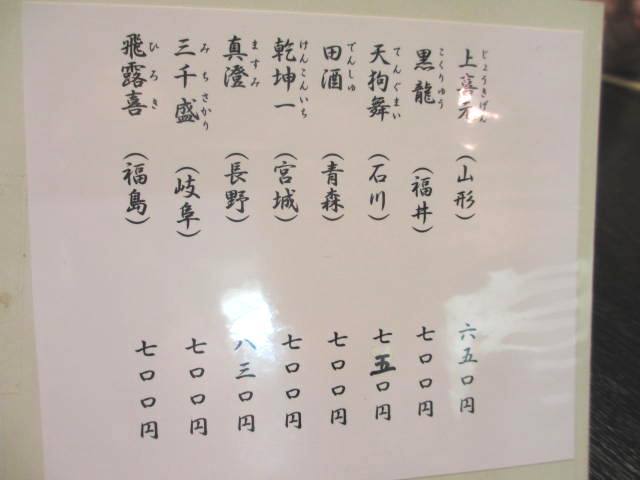 上喜元 じょうきげん （山形） 六五〇円
黒龍 こくりゅう （福井） 七〇〇円
天狗舞 てんぐまい （石川） 七五〇円
田酒 でんしゅ （青森） 七〇〇円
乾坤一 けんこんいち （宮城） 七〇〇円
真澄 ますみ （長野） 八三〇円
三千盛 みちさかり （岐阜） 七〇〇円
飛露喜 ひろき （福島） 七〇〇円